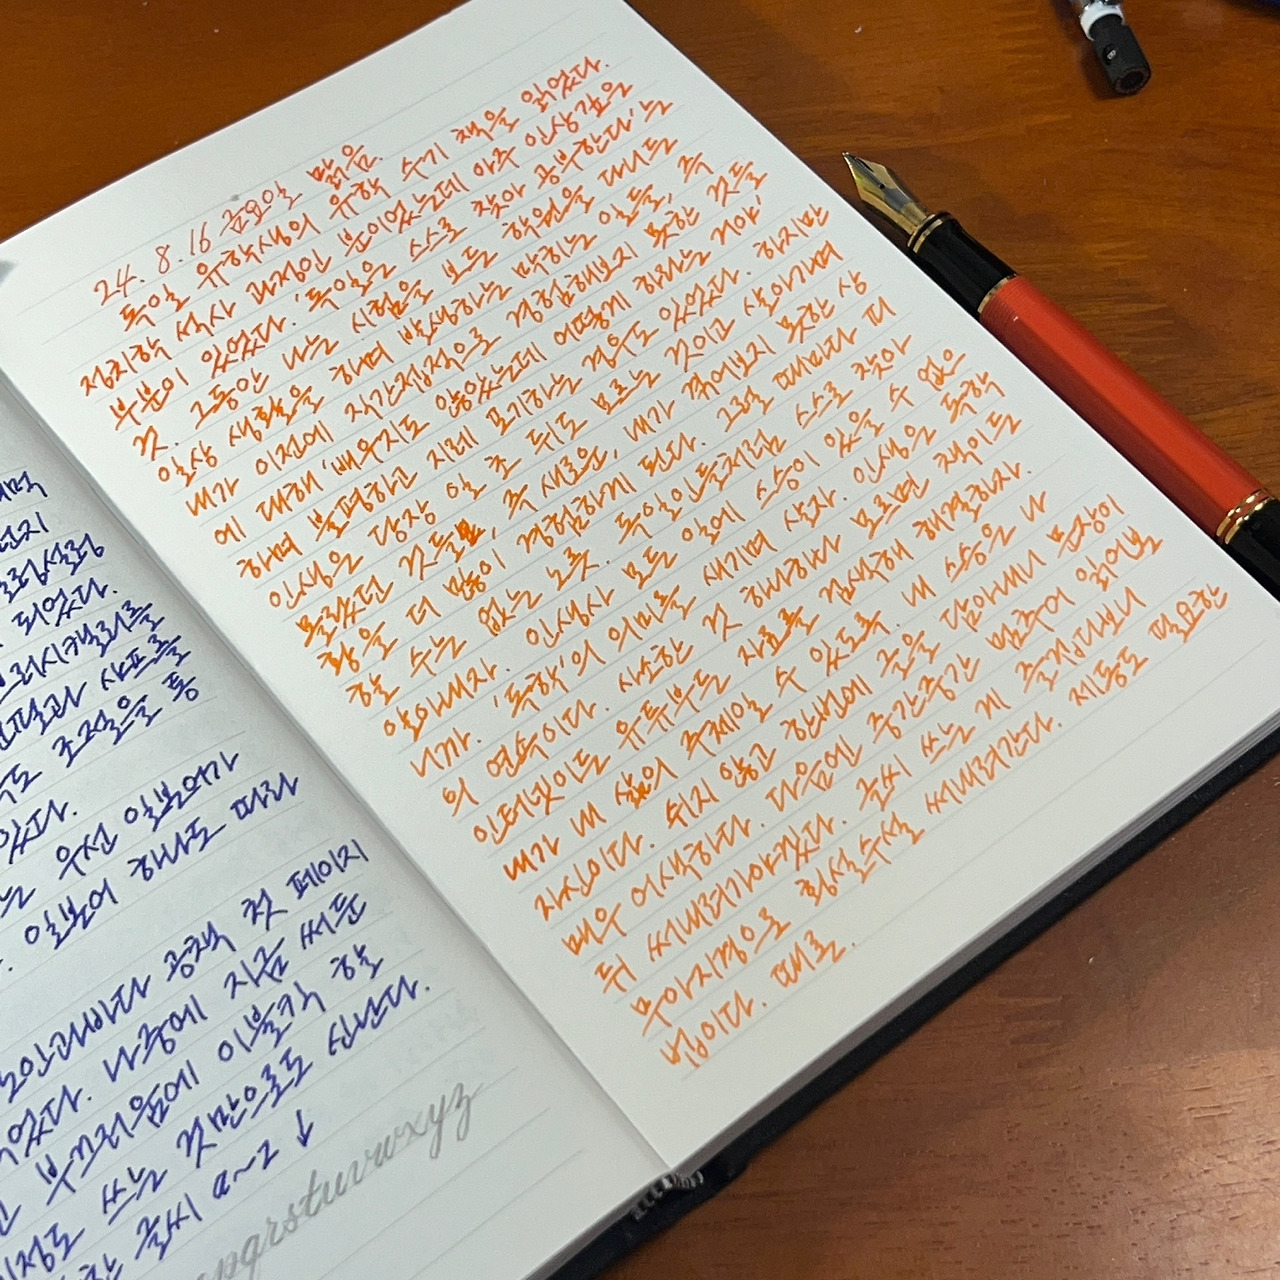 24. 8. 16 금요일 맑음.
독일 유학생의 유학 수기 책을 읽었다.
정치학 석사 과정인 분이었는데 아주 인상깊은
부분이 있었다. '독일은 스스로 찾아 공부한다'는
것. 그동안 나는 시험을 보든 학원을 다니든
일상 생활을 하며 발생하는 막히는 일들, 즉
내가 이전에 직간접적으로 경험해보지 못한 것들
에 대해 '배우지도 않았는데 어떻게 하라는 거야'
하며 불평하고 지레 포기하는 경우도 있었다. 하지만
인생은 당장 일 초 뒤도 모르는 것이고 살아가며
몰랐던 것들, 즉 새로운, 내가 겪어보지 못한 상
황을 더 많이 경험하게 된다. 그럴 때마다 피
할 수는 없는 노릇. 독일인들처럼 스스로 찾아
알아내자. 인생사 모든 일에 스승이 있을 수 없으
니까. '독학'의 의미를 새기며 살자. 인생은 독학
의 연속이다. 사소한 것 하나하나 모르면 책이든
인터넷이든 유튜브든 자료를 검색해 해결하자.
내가 내 삶의 주체일 수 있도록. 내 스승은 나
자신이다. 쉬지 않고 한번에 글을 담아내니 문장이
매우 어색하다. 다음엔 중간중간 멈추어 읽어본
뒤 써내려가야겠다. 글씨 쓰는 게 즐겁다보니
무아지경으로 횡설수설 써내려간다. 제동도 필요한
법이다. 때론.
되었다.
샤프를
조절을 통
있다.
는 우선 일본어가
일본어 하나로 따라
공책 첫 페이지
었다. 나중에 지금 써둔
부끄러움에 이불킥 할
정도 쓰는 것만으로도 신난다.
글씨 a~z ↓
pqrstuvwxyz